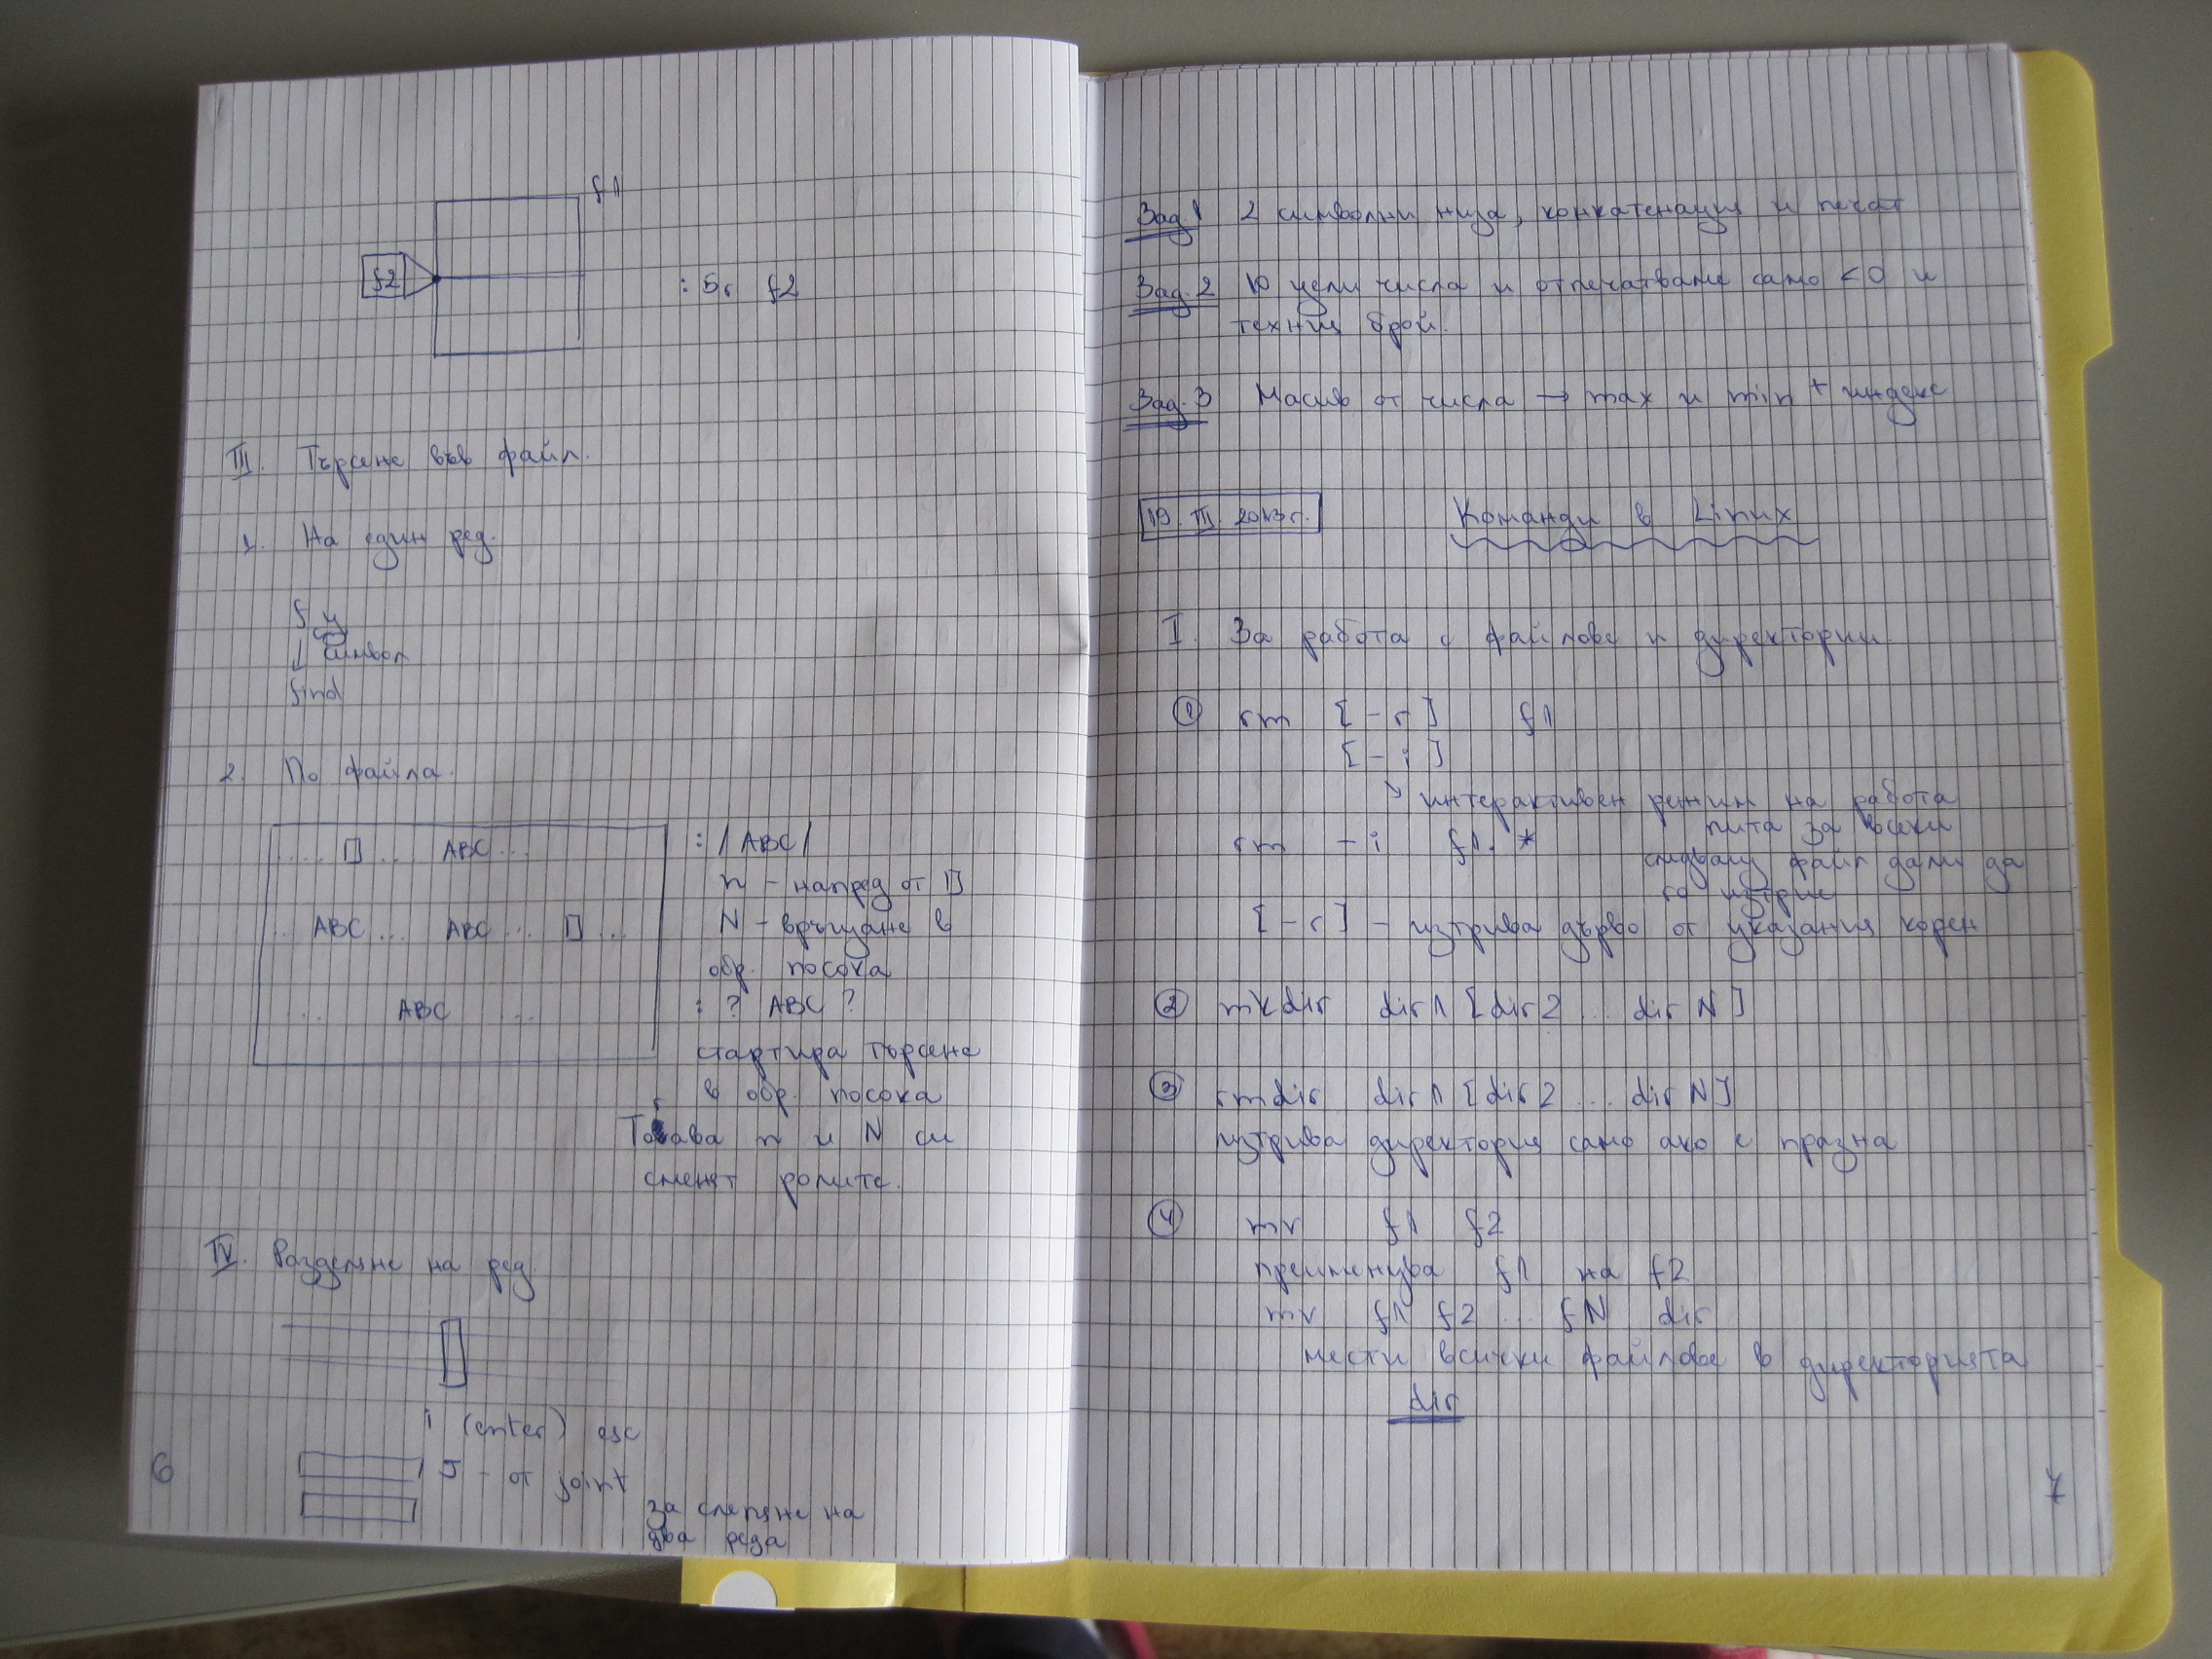 f1
f2
: 5r f2
III. Търсене във файл.
1. На един ред.
f ц
↓ символ
find
2. По файла.
.... [] .. ABC ...
: / ABC /
n - напред от []
.. ABC ... ABC ... [] ...
N - връщане в
обр. посока
... ABC ...
: ? ABC ?
стартира търсене
в обр. посока
Тогава n и N си
сменят ролите.
IV. Разделяне на ред.
i (enter) esc
J - от joint
за слепяне на
два реда
6
Зад. 1 2 символни низа, конкатенация и печат
Зад. 2 10 цели числа и отпечатване само < 0 и
техния брой.
Зад. 3 Масив от числа → max и min + индекс
19. III. 2013г. Команди в Linux
I. За работа с файлове и директории.
① rm [-r] f1
[-i]
↘ интерактивен режим на работа
пита за всеки
rm -i f1. *
следващ файл дали да
го изтрие
[-r] - изтрива дърво от указания корен
② mkdir dir1 [dir2 ... dir N]
③ rmdir dir1 [dir2 ... dir N]
изтрива директория само ако е празна
④ mv f1 f2
преименува f1 на f2
mv f1 f2 ... fN dir
мести всички файлове в директорията
dir
7